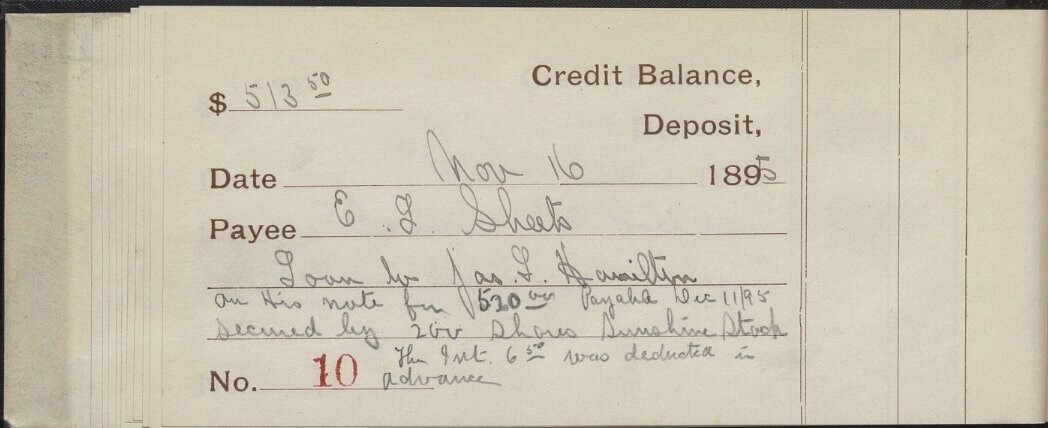 Credit Balance,
$ 513 50
Deposit,
Date Nov 16 1895
Payee E. F. Sheets
Loan to Jas. F. Hamilton
on His note for $520 00 Payable Dec 11/95
secured by 200 Shares Sunshine Stock
The Int. 6 50 was deducted in
No. 10 advance